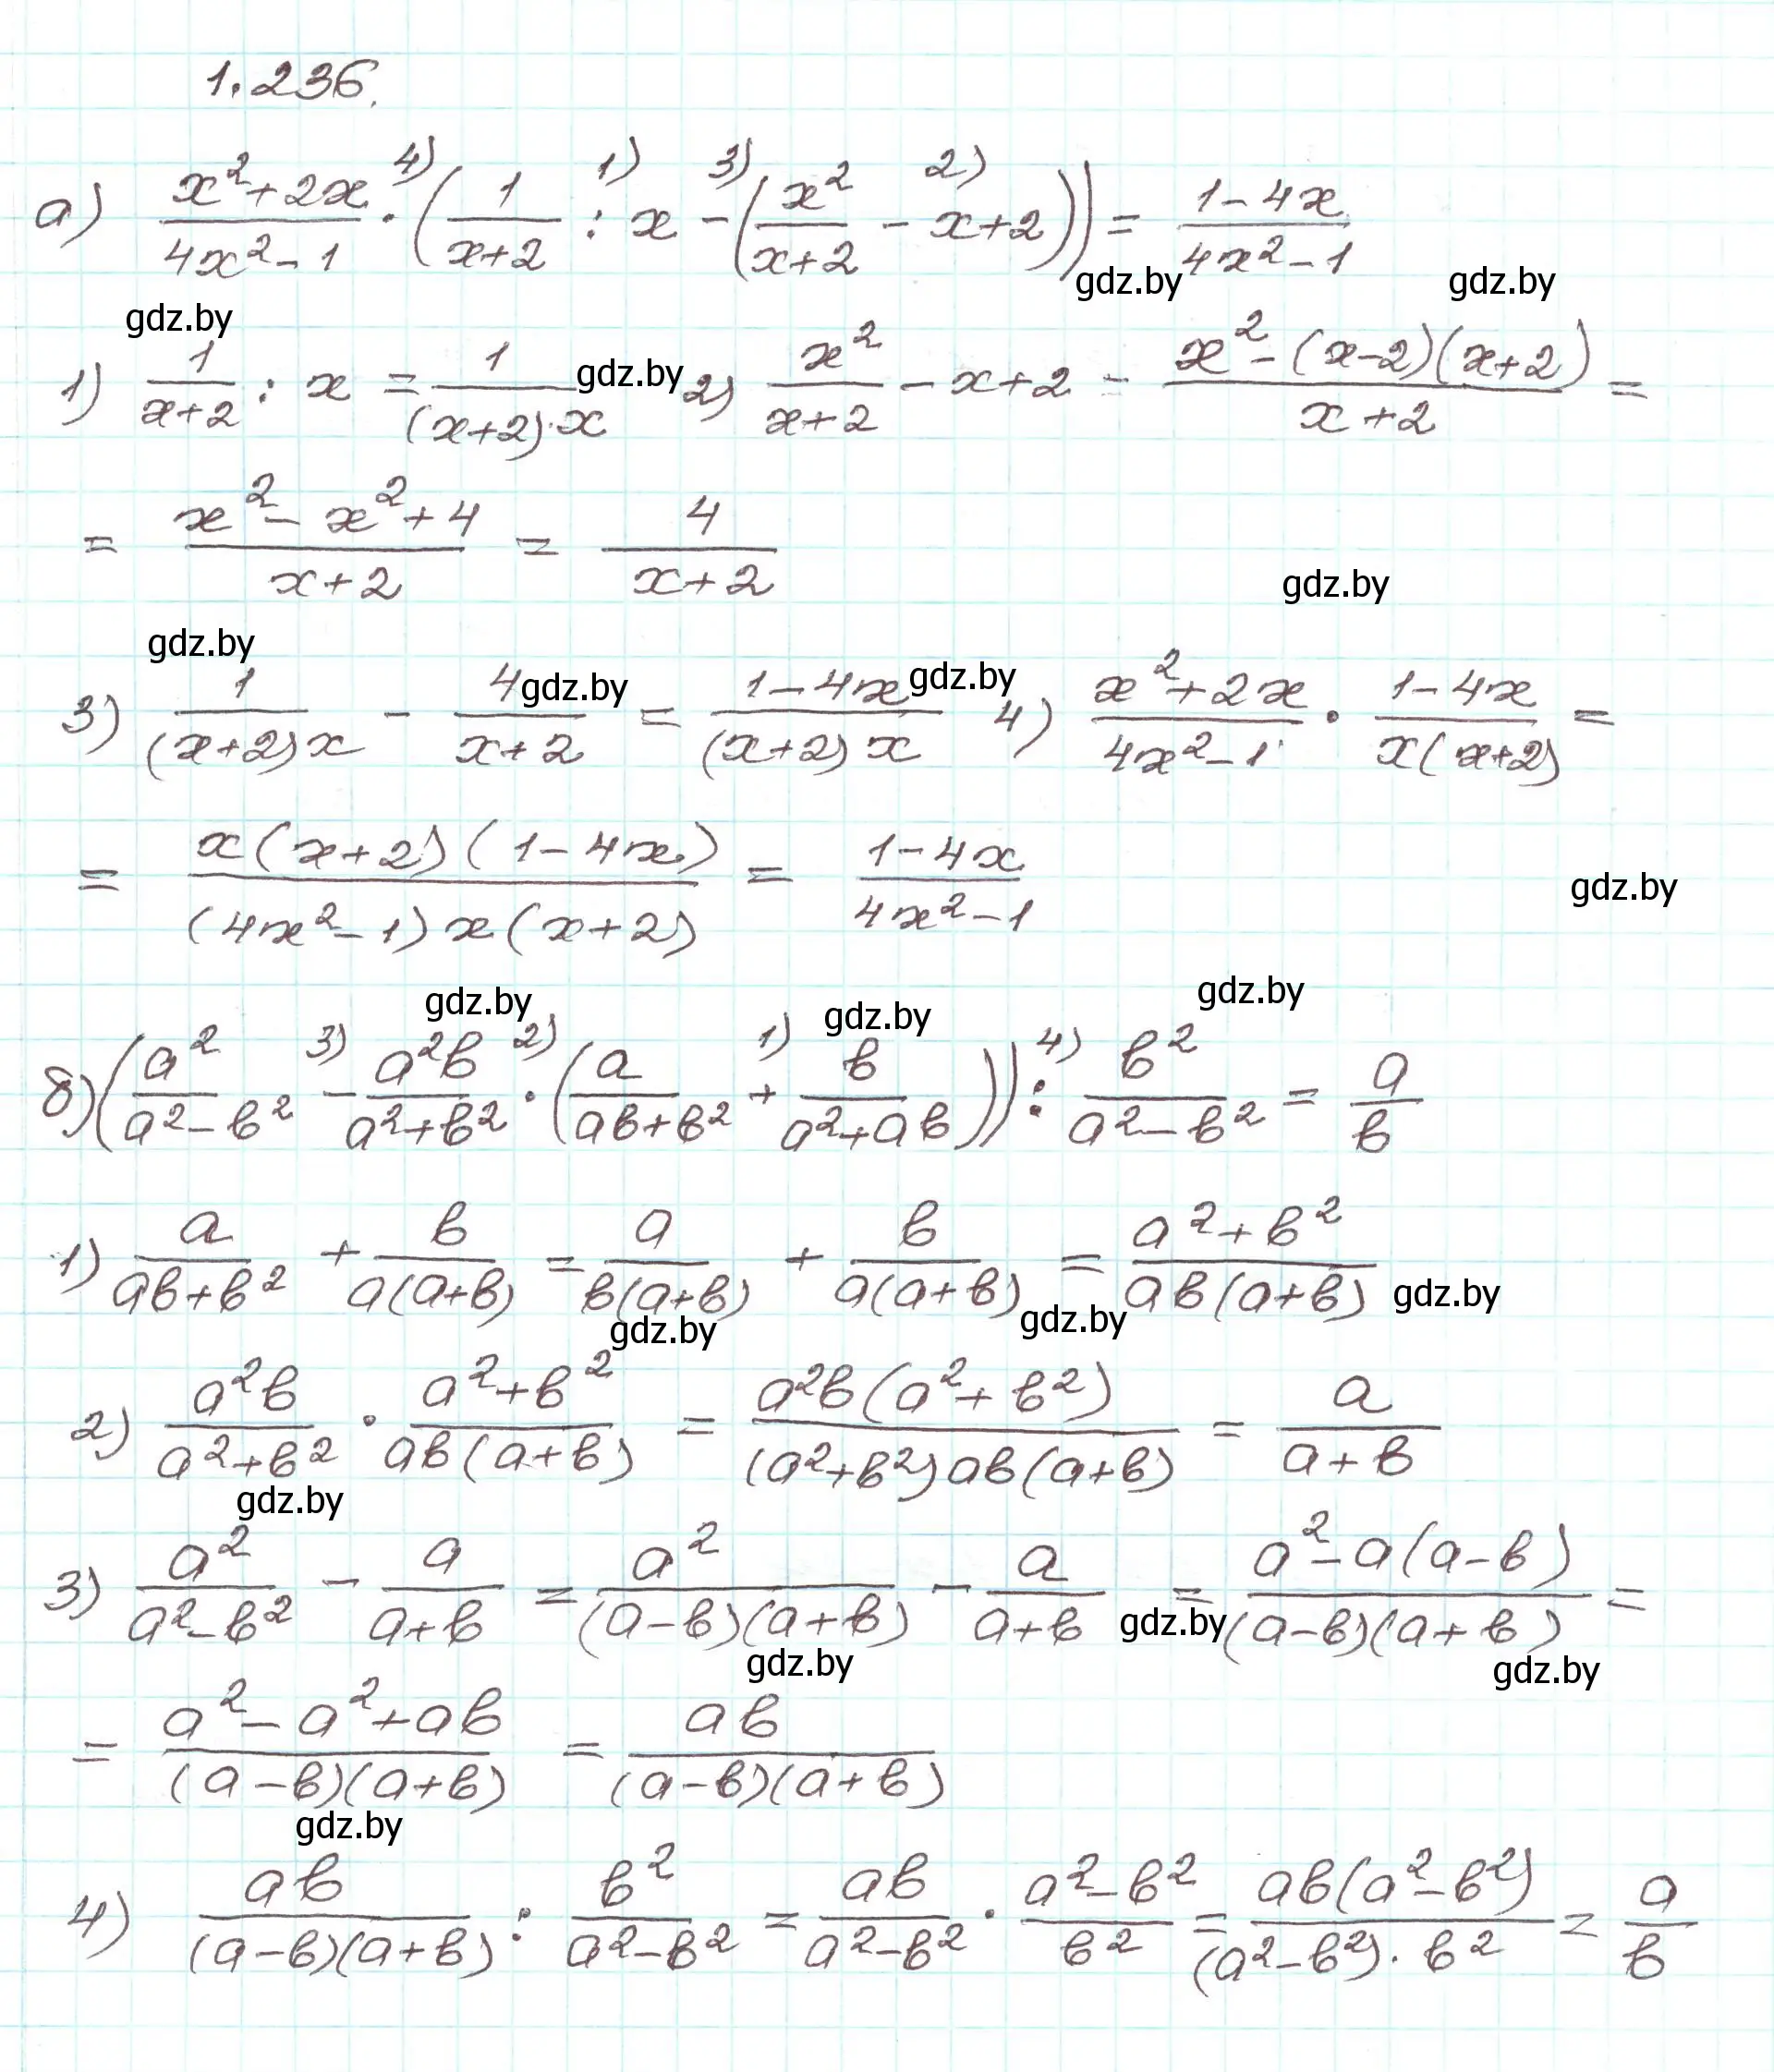 1.236.
а) (x²+2x)/(4x²-1) ·⁴⁾ (1/(x+2) :¹⁾ x -³⁾ (x²/(x+2) -²⁾ x+2)) = (1-4x)/(4x²-1)
gdz.by gdz.by gdz.by
1) 1/(x+2) : x = 1/((x+2)·x) gdz.by 2) x²/(x+2) - x+2 = (x²-(x-2)(x+2))/(x+2) =
= (x²-x²+4)/(x+2) = 4/(x+2)
gdz.by
gdz.by
3) 1/((x+2)x) - 4/(x+2) gdz.by = (1-4x)/((x+2)x) gdz.by 4) (x²+2x)/(4x²-1) · (1-4x)/(x(x+2)) =
= (x(x+2)(1-4x))/((4x²-1)x(x+2)) = (1-4x)/(4x²-1) gdz.by
gdz.by gdz.by gdz.by
б) (a²/(a²-b²) -³⁾ a²b/(a²+b²) ·²⁾ (a/(ab+b²) +¹⁾ b/(a²+ab))) :⁴⁾ b²/(a²-b²) = a/b
1) a/(ab+b²) + b/(a(a+b)) = a/(b(a+b)) + b/(a(a+b)) = (a²+b²)/(ab(a+b)) gdz.by
gdz.by gdz.by
2) a²b/(a²+b²) · (a²+b²)/(ab(a+b)) = (a²b(a²+b²))/((a²+b²)ab(a+b)) = a/(a+b)
gdz.by
3) a²/(a²-b²) - a/(a+b) = a²/((a-b)(a+b)) - a/(a+b) gdz.by = (a²-a(a-b))/((a-b)(a+b)) =
gdz.by gdz.by
= (a²-a²+ab)/((a-b)(a+b)) = ab/((a-b)(a+b))
gdz.by
4) ab/((a-b)(a+b)) : b²/(a²-b²) = ab/(a²-b²) · (a²-b²)/b² = (ab(a²-b²))/((a²-b²)·b²) = a/b